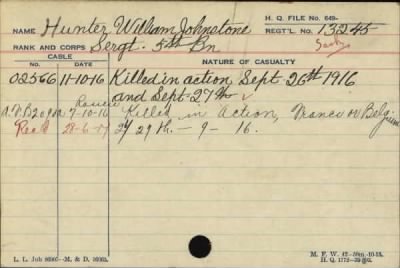 H. Q. FILE No. 649-
NAME Hunter William Johnstone REGT'L. No. 13245
RANK AND CORPS Sergt. 5th Bn
CABLE NATURE OF CASUALTY
No. DATE
02566 11-10-16 Killed in action Sept 26th 1916
and Sept 27th
Rouen
7-10-16 Killed in Action, France or Belgium
28-6-17 27 29th. - 9 - 16.
L. L. Job M. & D.
M. F. W. 42
H. Q. 1772-39